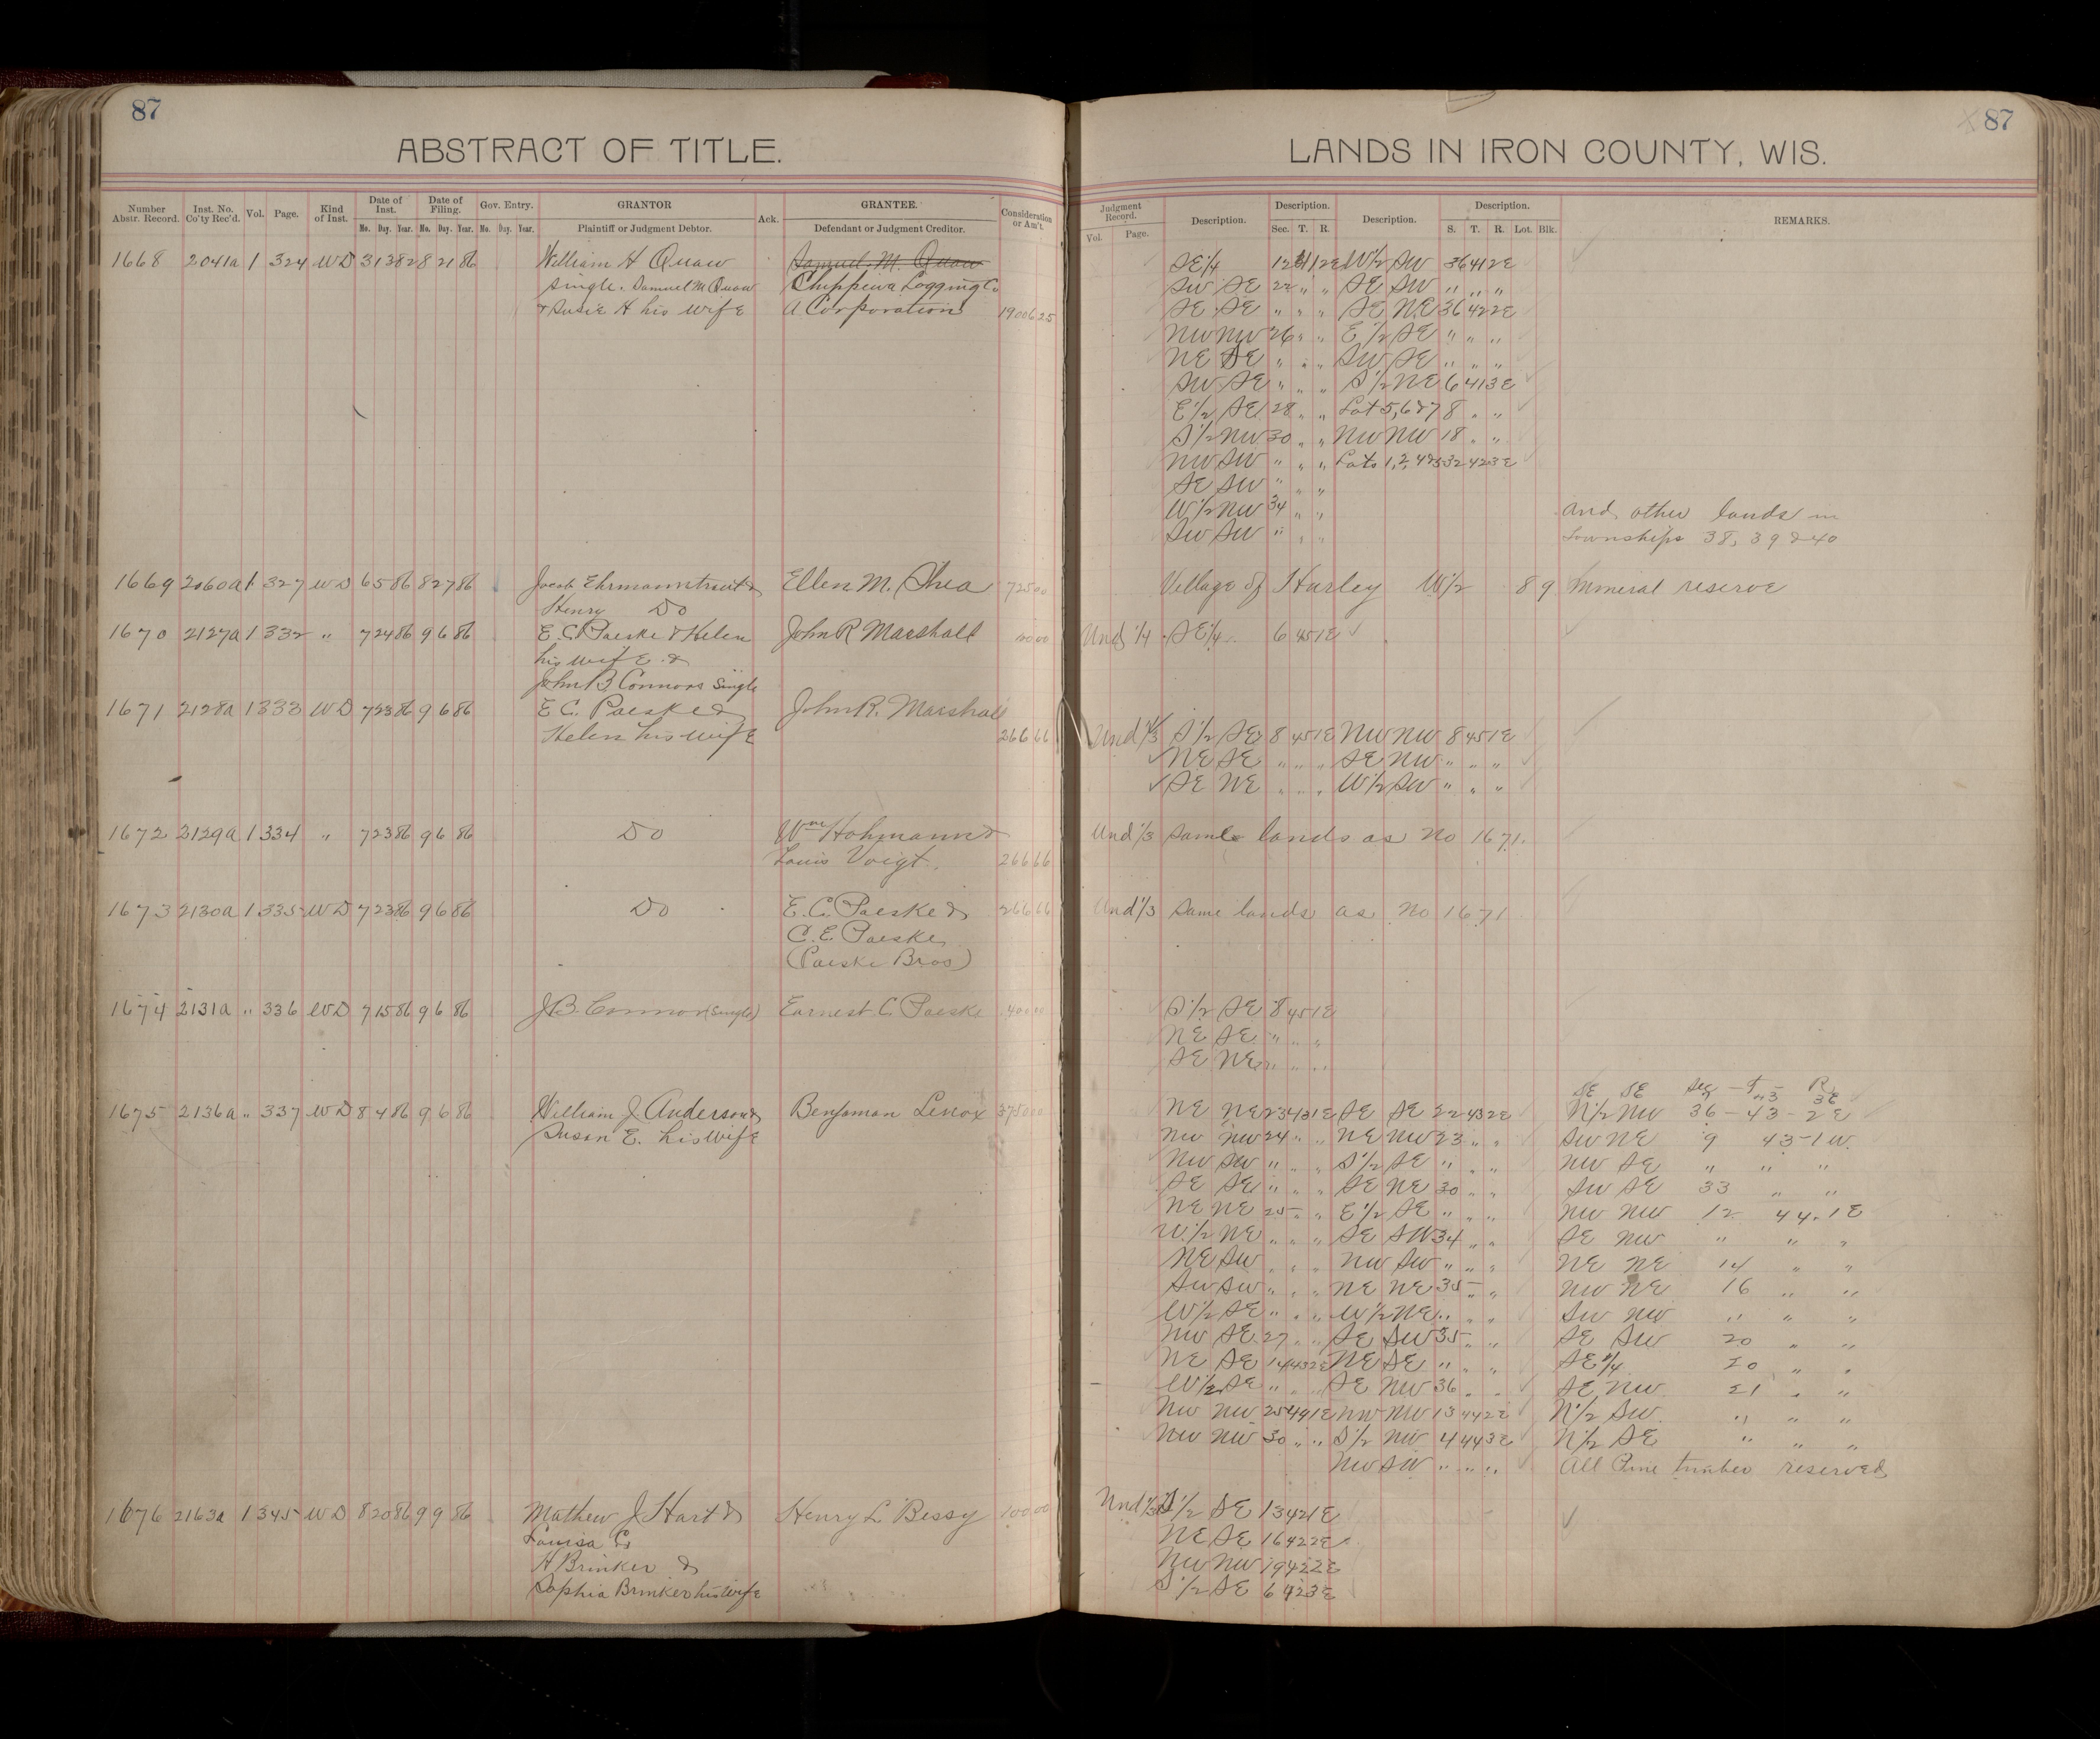 87
ABSTRACT OF TITLE.
Number Abstr. Record. Inst. No. Co'ty Rec'd. Vol. Page. Kind of Inst. Date of Inst. Date of Filing. Gov. Entry. GRANTOR Ack. GRANTEE. Consideration or Am't.
Mo. Day. Year. Mo. Day. Year. Mo. Day. Year. Plaintiff or Judgment Debtor. Defendant or Judgment Creditor.
1668 2041a 1 324 WD 3 13 82 8 21 86 William H Quaw Samuel M. Quaw
single. Samuel M Quaw Chippewa Logging Co
& Susie H his wife A Corporation 19006 25
1669 2060a 1 327 WD 6 5 86 8 27 86 Jacob Ehrmanntraut & Ellen M. Shea 725 00
Henry Do
1670 2127a 1 332 " 7 24 86 9 6 86 E. C. Paeske & Helen John R Marshall
his wife &
John B. Connors Single
1671 2128a 1 333 WD 7 23 86 9 6 86 E C. Paeske & John R. Marshall
Helen his wife 266 66
1672 2129a 1 334 " 7 23 86 9 6 86 Do Wm Hohmann &
Louis Voigt. 266 66
1673 2130a 1 335 WD 7 23 86 9 6 86 Do E. C. Paeske & 266 66
C. E. Paeske
(Paeske Bros)
1674 2131a " 336 WD 7 15 86 9 6 86 J. B. Connor (single) Earnest C. Paeske 400 00
1675 2136a " 337 WD 8 4 86 9 6 86 William J. Anderson & Benjaman Lenox 3750 00
Susan E. his wife
1676 2163a 1 345 WD 8 20 86 9 9 86 Mathew J Hart & Henry L Bessy 100 00
Louisa
H Brinker &
Sophia Brinker his wife
87
LANDS IN IRON COUNTY, WIS.
Judgment Record. Description. Description. Description. Description. REMARKS.
Vol. Page. Description. Sec. T. R. Description. S. T. R. Lot. Blk.
SE 1/4 12 41 2E W 1/2 SW 36 41 2E
SW SE 22 " " SE SW " " "
SE SE " " " SE NE 36 42 2E
NW NW 26 " " E 1/2 SE " " "
NE SE " " " SW SE " " "
SW SE " " " S 1/2 NE 6 41 3E
E 1/2 SE 28 " " Lot 5, 6 & 7 8 " "
S 1/2 NW 30 " " NW NW 18 " "
NW SW " " " Lots 1, 2, 4 & 5 32 42 3E
SE SW " " "
W 1/2 NW 34 " " and other lands in
SW SW " " " Townships 38, 39 & 40
Village of Hurley W 1/2 8 9 Mineral reserve
Und 1/4 SE 1/4 6 45 1E
Und 1/3 S 1/2 SE 8 45 1E NW NW 8 45 1E
NE SE " " " SE NW " " "
SE NE " " " W 1/2 SW " " "
Und 1/3 same lands as No 1671.
Und 1/3 same lands as No 1671
S 1/2 SE 8 45 1E
NE SE " " "
SE NE " " "
SE SE Sec T R
NE NE 23 43 1E SE SE 22 43 2E N 1/2 NW 36 - 43 - 2 E
NW NW 24 " " NE NW 23 " " SW NE 9 43 - 1 W.
NW SW " " " S 1/2 SE " " " NW SE " " "
SE SE " " " SE NE 30 " " SW SE 33 " "
NE NE 25 " " E 1/2 SE " " " NW NW 12 44. 1 E
W 1/2 NE " " " SE SW 34 " " SE NW " " "
NE SW " " " NW SW " " " NE NE 14 " "
SW SW " " " NE NE 35 " " NW NE 16 " "
W 1/2 SE " " " W 1/2 NE " " " SW NW " " "
NW SE 27 " " SE SW 35 " " SE SW 20 " "
NE SE 14 43 2E NE SE " " " SE 1/4 20 " "
W 1/2 SE " " " SE NW 36 " " SE NW 21 " "
NW NW 25 44 1E NW NW 13 44 2E N 1/2 SW " " "
NW NW 30 " " S 1/2 NW 4 44 3E N 1/2 SE " " "
NW SW " " " All Pine timber reserved
Und 1/3 S 1/2 SE 13 42 1E
NE SE 16 42 2E
NW NW 19 42 2E
S 1/2 SE 6 42 3E